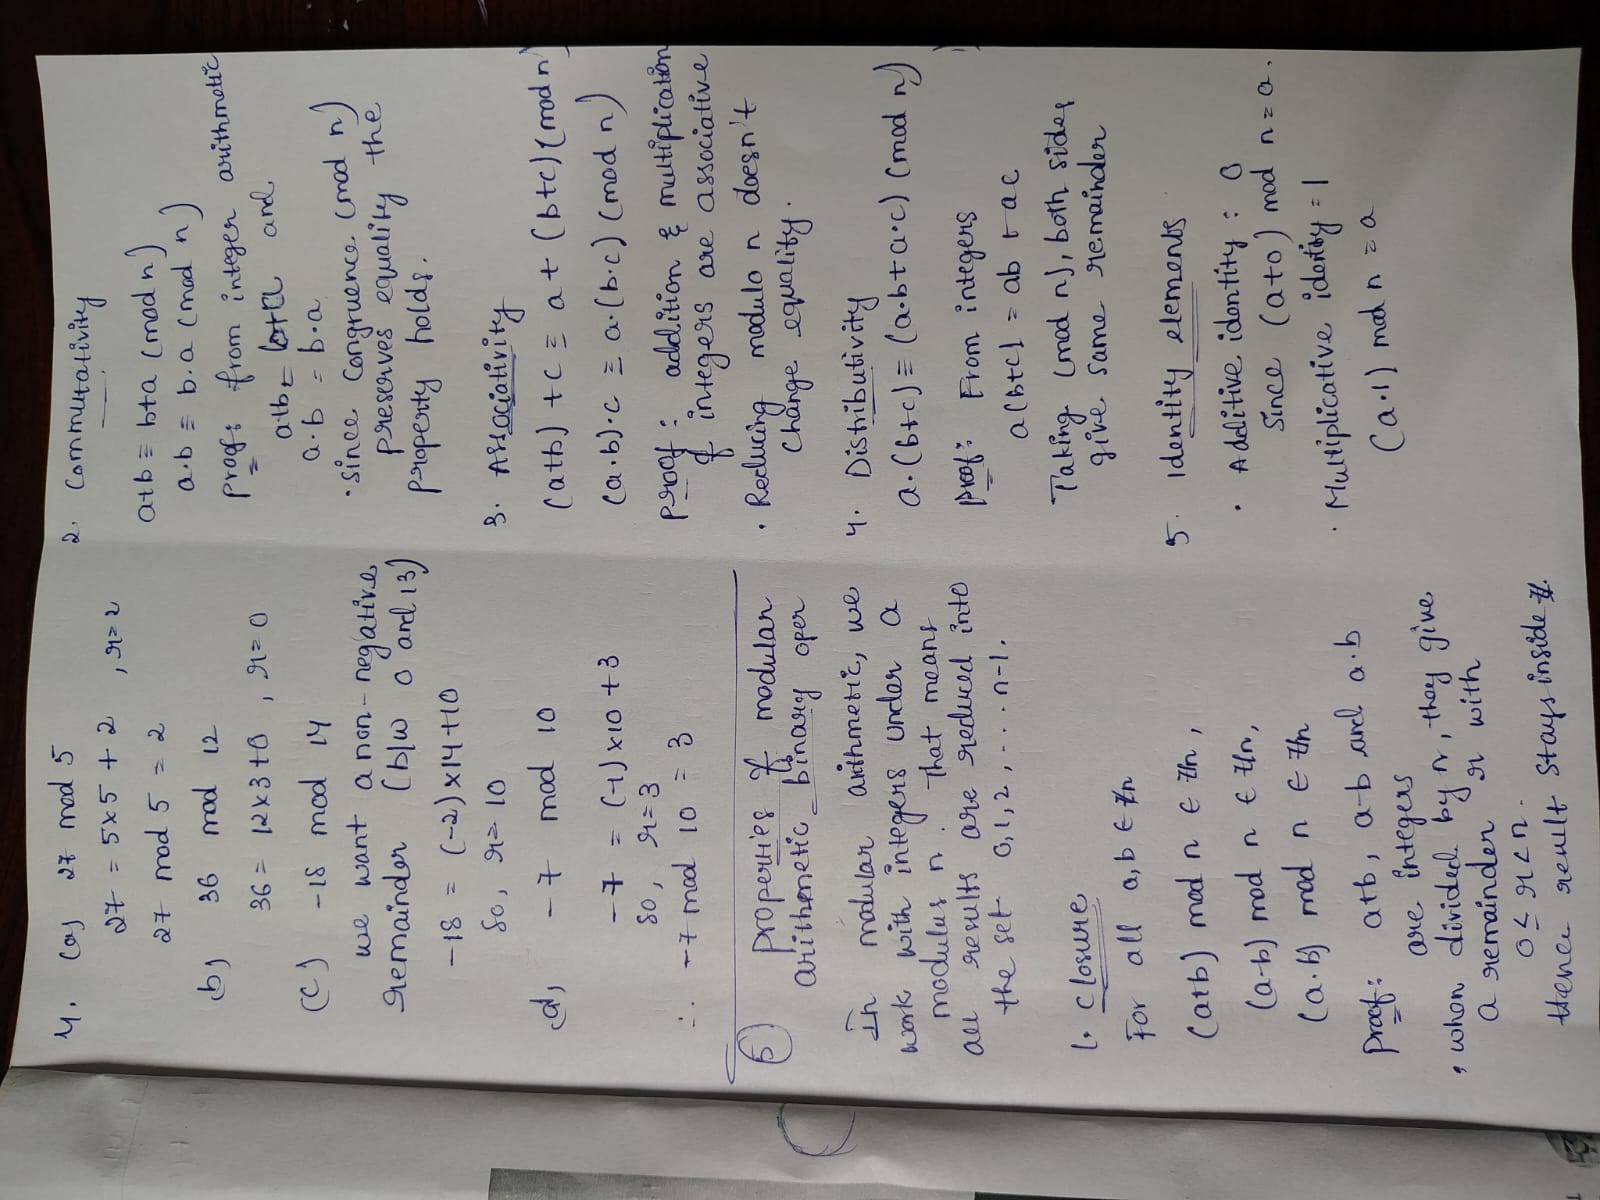 4. (a) 27 mod 5
27 = 5×5 + 2 , r=2
27 mod 5 = 2
b) 36 mod 12
36 = 12×3+0 , r=0
(c) -18 mod 14
we want a non-negative
remainder (b/w 0 and 13)
-18 = (-2)×14+10
So, r=10
d, -7 mod 10
-7 = (-1)×10+3
So, r=3
∴ -7 mod 10 = 3
5) properties of modular
arithmetic binary oper
In modular arithmetic, we
work with integers under a
modulus n. That means
all results are reduced into
the set 0,1,2,...n-1.
1. closure
For all a,b ∈ Zn
(a+b) mod n ∈ Zn,
(a-b) mod n ∈ Zn,
(a·b) mod n ∈ Zn
Proof: a+b, a-b and a·b
are integers
, when divided by n, they give
a remainder r with
0 ≤ r < n.
Hence result stays inside Z.
2. Commutativity
a+b ≡ b+a (mod n)
a·b ≡ b.a (mod n)
Proof: from integer arithmetic
a+b = b+a and
a·b = b·a
· Since congruence (mod n)
preserves equality the
property holds.
3. Associativity
(a+b)+c ≡ a+(b+c)(mod n)
(a·b)·c ≡ a·(b·c) (mod n)
Proof: addition & multiplication
of integers are associative
· Reducing modulo n doesn't
change equality.
4. Distributivity
a·(b+c) ≡ (a·b+a·c) (mod n)
Proof: From integers
a(b+c) = ab + ac
Taking (mod n), both sides
give same remainder
5. Identity elements
· Additive identity: 0
Since (a+0) mod n = a.
· Multiplicative idenity = 1
(a·1) mod n = a